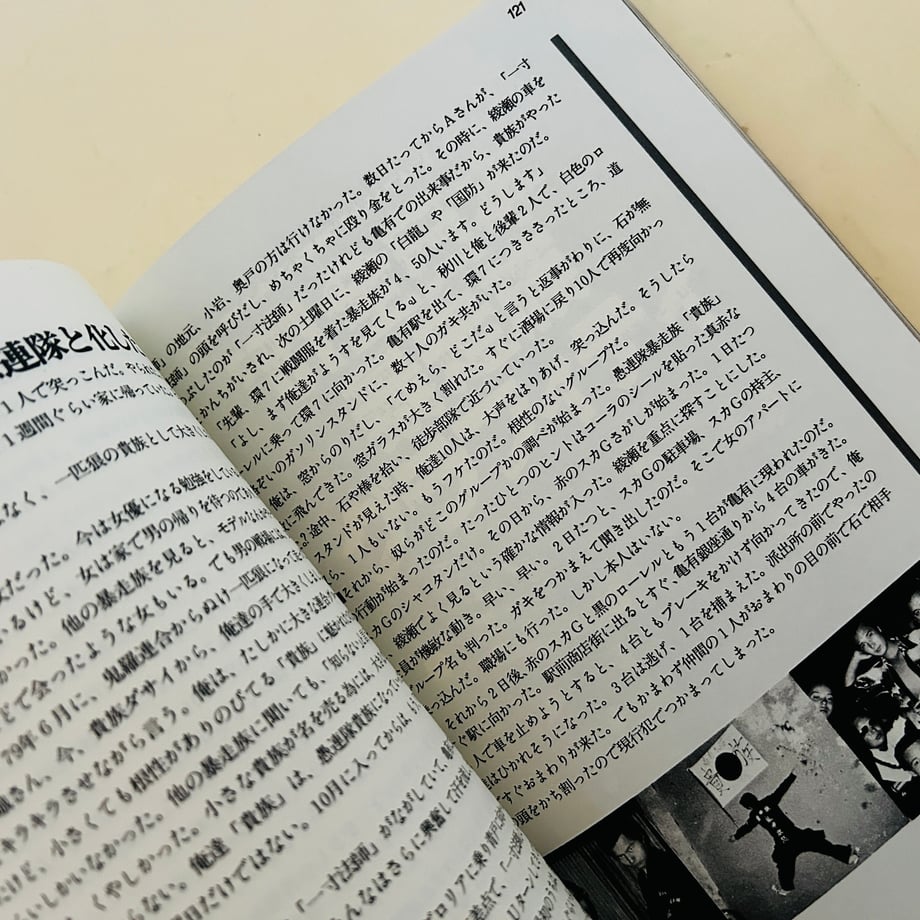 連隊と化し
1人で突っこんだ。
1週間ぐらい家に帰って
なく、一匹狼の貴族として大き
女だった。今は女優になる勉強をしてい
いるけど、女は家で男の帰りを待つのため
かった。他の暴走族を見ると、モデルなみ
どで会ったような女もいる。でも男の戦術
79年6月に、鬼羅連合からぬけ一匹狼になって
さん、今、貴族ダサイから、俺達の手で大きく
キラキラさせながら言う。俺は、たしかに大きな連合
だけど、小さくても相性がありのびてる「貴族」に魅せ
くらいしかいなかった。他の暴走族に聞いても、「知らない
くやしかった。小さな貴族が名を売る為には、大
らない。俺達「貴族」は、愚連隊貴族になった
日だけではない。10月に入ってからは、
「一寸法師」がながしていて、
んなはさらに興奮して
グロリアに乗り
121
の地元、小岩、奥戸の方は行けなかった。数日たってからAさんが、「一寸
」の頭を呼びだし、めちゃくちゃに殴り金をとった。その時に、綾瀬の車を
つぶしたのが「一寸法師」だったけれども亀有での出来事だから、貴族がやった
かんちがいされ、次の土曜日に、綾瀬の「白龍」や「国防」が来たのだ。
「先輩、環7に戦闘服を着た暴走族が4、50人います。どうします」
「よし、まず俺達がようすを見てくる』と、秋川と俺と後輩2人で、白色のロ
ーレルに乗って環7に向かった。亀有駅を出て、環7につきささったところ、道
ぞいのガソリンスタンドに、数十人のガキ共がいた。
俺は、窓からのりだし、「てめえら、どこだ』と言うと返事がわりに、石が無
に飛んできた。窓ガラスが大きく割れた。すぐに酒場に戻り10人で再度向かっ
?途中、石や棒を拾い、徒歩部隊で近づいていった。
スタンドが見えた時、俺達10人は、大声をはりあげ、突っ込んだ。そうしたら
1人もいない。もうフケたのだ。相性のないグループだ。
それから、奴らがどこのグループかの調べが始まった。愚連隊暴走族「貴族」
行動が始まったのだ。たったひとつのヒントはコーラのシールを貼った真赤な
カGのシャコタンだけ。その日から、赤のスカGさがしが始まった。1日たつ
綾瀬でよく見るという確かな情報が入った。綾瀬を重点に探すことにした。
員が機敏な動き。早い、早い。2日たつと、スカGの駐車場、スカGの特主、
ープ名も判った。ガキをつかまえて聞き出したのだ。そこで女のアパートに
っ込んだ。職場にも行った。しかし本人はいない。
それから2日後、赤のスカGと黒のローレルともう1台が亀有に現われたのだ。
ぐ駅に向かった。駅前商店街に出るとすぐ、亀有銀座通りから4台の車がきた。
人で車を止めようとすると、4台ともブレーキをかけず向かってきたので、俺
はひかれそうになった。3台は逃げ、1台を捕まえた。派出所の前でやったの
すぐおまわりが来た。でもかまわず仲間の1人がおまわりの目の前で石で相手
頭をかち割ったので現行犯でつかまってしまった。